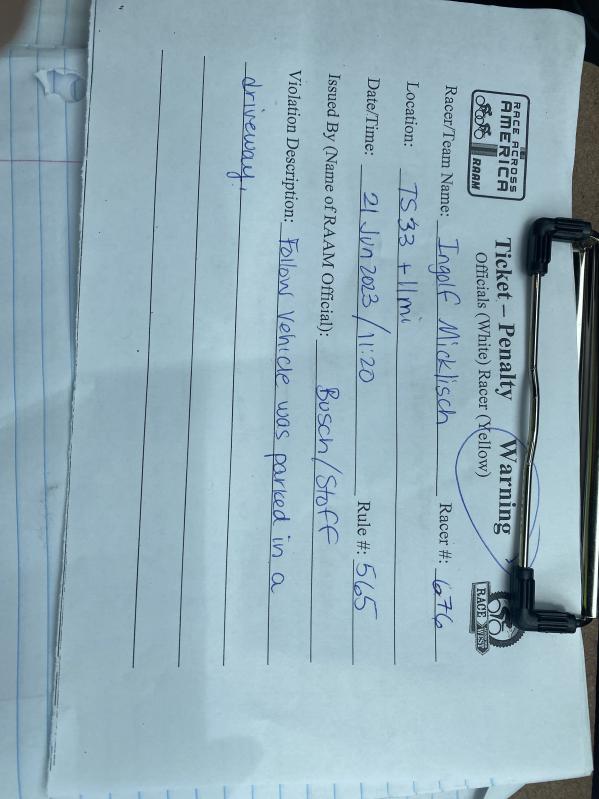 RACE ACROSS
AMERICA
RAAM
Ticket – Penalty Warning
Officials (White) Racer (Yellow)
RACE WEST
Racer/Team Name: Ingolf Micklisch Racer #: 676
Location: TS 33 + 11 mi
Date/Time: 21 Jun 2023 / 11:20 Rule #: 565
Issued By (Name of RAAM Official): Busch/Stoff
Violation Description: Follow vehicle was parked in a
driveway.